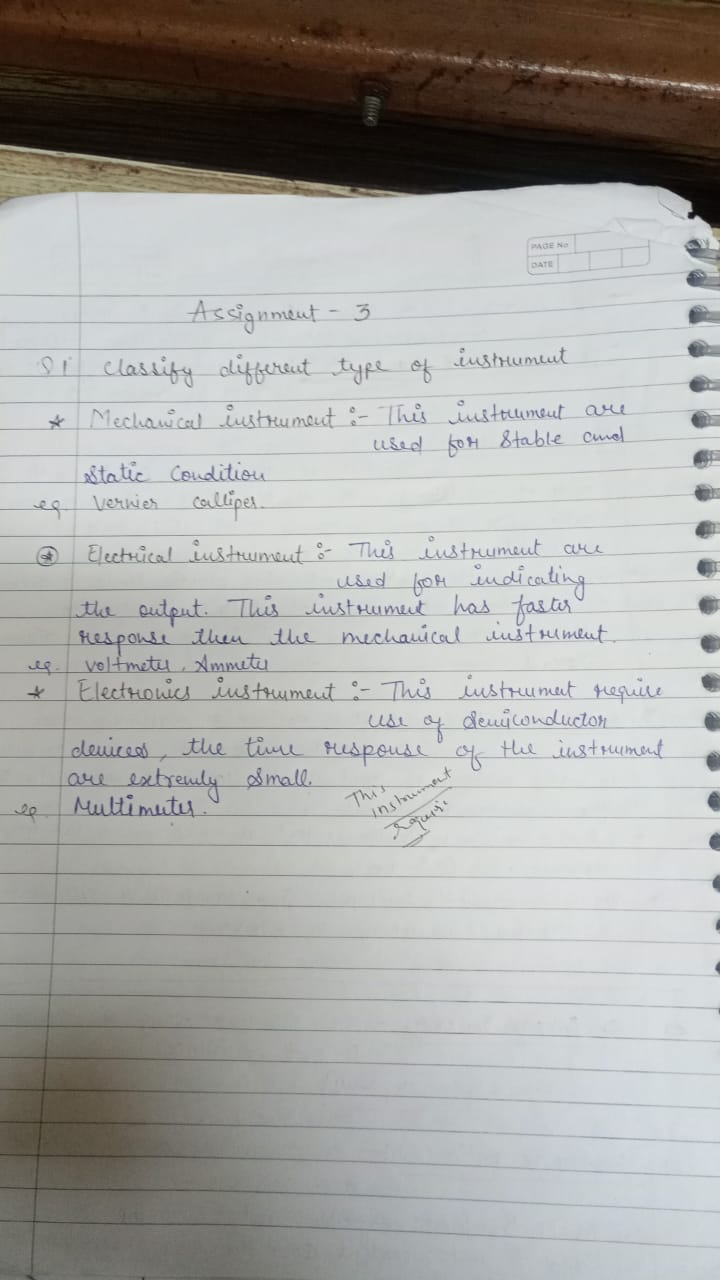 PAGE No
DATE
Assignment - 3
Q1 Classify different type of instrument
* Mechanical instrument :- This instrument are
used for Stable and
Static Condition
eg. Vernier callipes.
* Electrical instrument :- This instrument are
used for indicating
the output. This instrument has faster
response then the mechanical instrument.
eg. voltmeter, Ammeter
* Electronics instrument :- This instrument require
use of semiconductor
devices, the time response of the instrument
are extremly small.
eg. Multimeter.
This
instrument
require